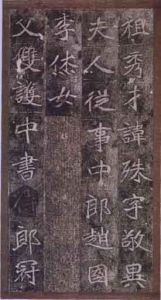 祖秀才諱殊字敬異
夫人從事中郎趙國
李烋女
父雙護中書侍郎冠